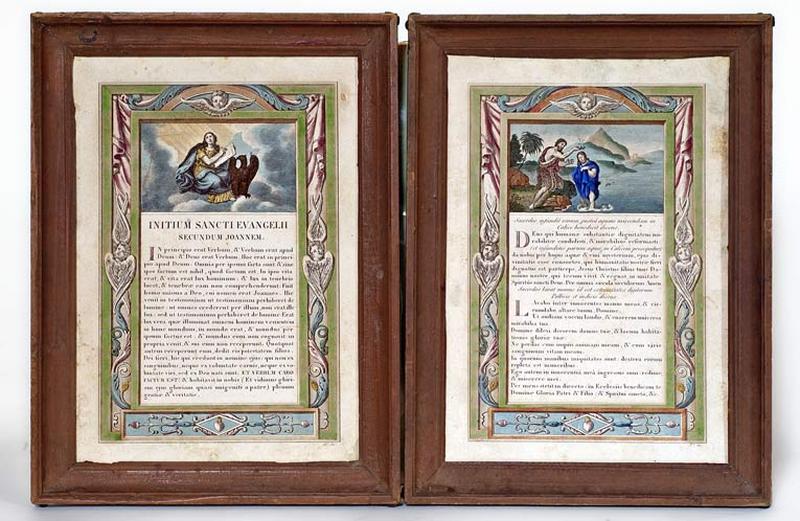 INITIUM SANCTI EVANGELII
SECUNDUM JOANNEM.
IN principio erat Verbum, & Verbum erat apud
Deum: & Deus erat Verbum. Hoc erat in princi-
pio apud Deum. Omnia per ipsum facta sunt & sine
ipso factum est nihil, quod factum est. In ipso vita
erat, & vita erat lux hominum: & lux in tenebris
lucet, & tenebrae eam non comprehenderunt. Fuit
homo missus a Deo, cui nomen erat Joannes. Hic
venit in testimonium ut testimonium perhiberet de
lumine: ut omnes crederent per illum, non erat ille
lux: sed ut testimonium perhiberet de lumine. Erat
lux vera quae illuminat omnem hominem venientem
in hunc mundum, in mundo erat, & mundus per
ipsum factus est: & mundus eum non cognovit in
propria venit, & sui eum non receperunt. Quotquot
autem receperunt eum, dedit eis potestatem filios
Dei fieri, his qui credunt in nomine ejus: qui non ex
sanguinibus, neque ex voluntate carnis, neque ex vo-
luntate viri, sed ex Deo nati sunt. ET VERBUM CARO
FACTUM EST: & habitavit in nobis (Et vidimus glori-
am ejus gloriam quasi unigeniti a patre) plenum
gratiae & veritatis.
Sacerdos infundit vinum
Calice benedicit dicens
DEus qui humanae substantiae dignitatem mi-
rabiliter condidisti, & mirabilius reformasti:
da nobis per hujus aquae & vini mysterium, ejus di-
vinitatis esse consortes, qui humanitatis nostrae fieri
dignatus est particeps, Jesus Christus filius tuus Do-
minus noster, qui tecum vivit & regnat in unitate
Spiritus sancti Deus. Per omnia saecula saeculorum Amen
LAvabo inter innocentes manus meas, & cir-
cumdabo altare tuum, Domine.
Ut audiam vocem laudis, & enarrem universa
mirabilia tua.
Domine dilexi decorem domus tuae, & locum habita-
tionis gloriae tuae.
Ne perdas cum impiis animam meam, & cum viris
sanguinum vitam meam.
In quorum manibus iniquitates sunt: dextera eorum
repleta est muneribus.
Ego autem in innocentia mea ingressus sum: redime
& miserere mei.
Pes meus stetit in directo: in Ecclesiis benedicam te
Domine. Gloria Patri & Filio, & Spiritui sancto, &c.